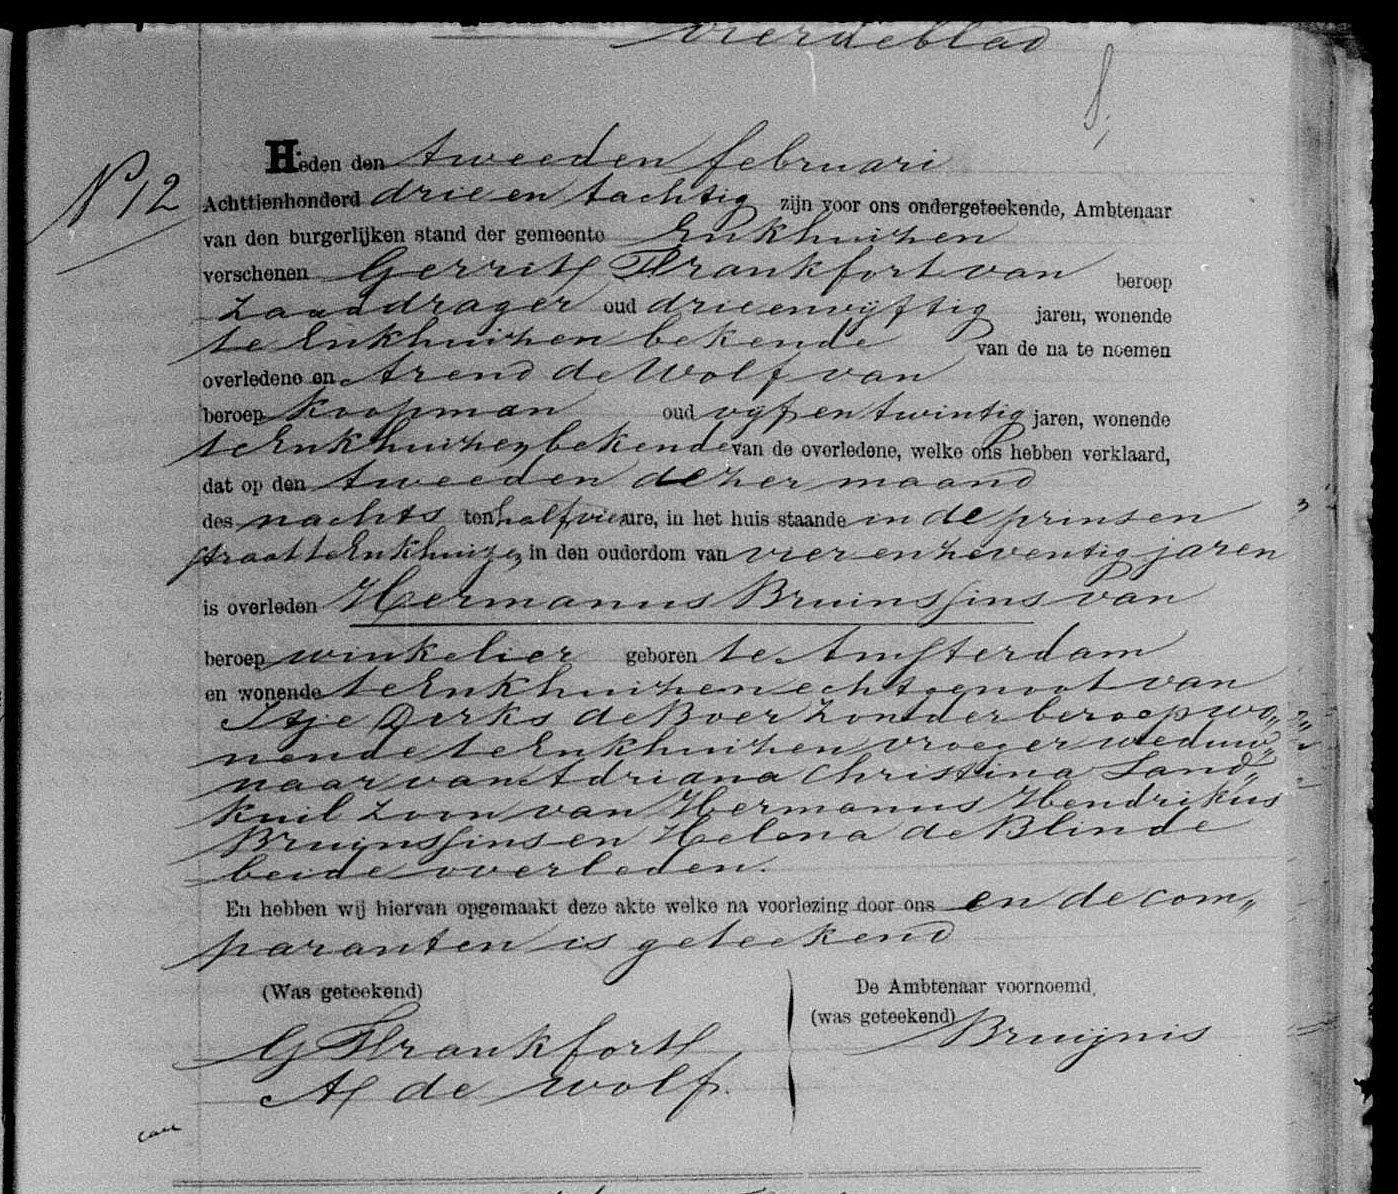 vierdeblad
N° 12
Heden den tweeden februari
Achttienhonderd drie en tachtig zijn voor ons ondergeteekende, Ambtenaar
van den burgerlijken stand der gemeente Enkhuizen
verschenen Gerrit Frankfort van beroep
zaaddrager oud drieenvijftig jaren, wonende
te Enkhuizen bekende van de na te noemen
overledene en Arend de Wolf van
beroep koopman oud vijf en twintig jaren, wonende
te Enkhuizen, bekende van de overledene, welke ons hebben verklaard,
dat op den tweeden dezer maand
des nachts ten half vier ure, in het huis staande in de prinsen
straat te Enkhuizen, in den ouderdom van vier en zeventig jaren
is overleden Hermanus Bruinssins van
beroep winkelier geboren te Amsterdam
en wonende te Enkhuizen echtgenoot van
Itje Derks de Boer zonder beroep wo„
nende te Enkhuizen vroeger weduw„
naar van Adriana Christina Land„
kuil zoon van Hermanus Hendrikus
Bruinssins en Helena de Blinde
beide overleden.
En hebben wij hiervan opgemaakt deze akte welke na voorlezing door ons en de com„
paranten is geteekend
(Was geteekend)
De Ambtenaar voornoemd,
(was geteekend) Bruijnis
G Frankfort
A de Wolf.